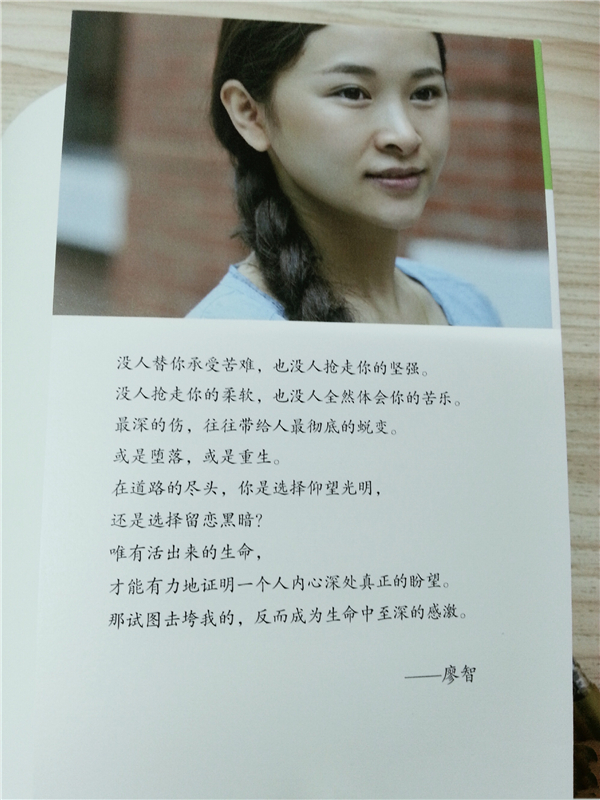 没人替你承受苦难，也没人抢走你的坚强。
没人抢走你的柔软，也没人全然体会你的苦乐。
最深的伤，往往带给人最彻底的蜕变。
或是堕落，或是重生。
在道路的尽头，你是选择仰望光明，
还是选择留恋黑暗？
唯有活出来的生命，
才能有力地证明一个人内心深处真正的盼望。
那试图击垮我的，反而成为生命中至深的感激。
——廖智